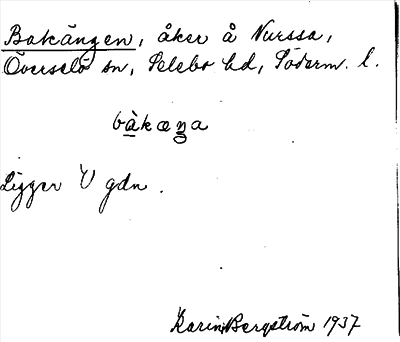 Bakängen, åker å Nurssa,
Överselö sn, Selebo hd, Söderm. l.
bàkæŋa
Ligger V gdn.
Karin Bergström 1937